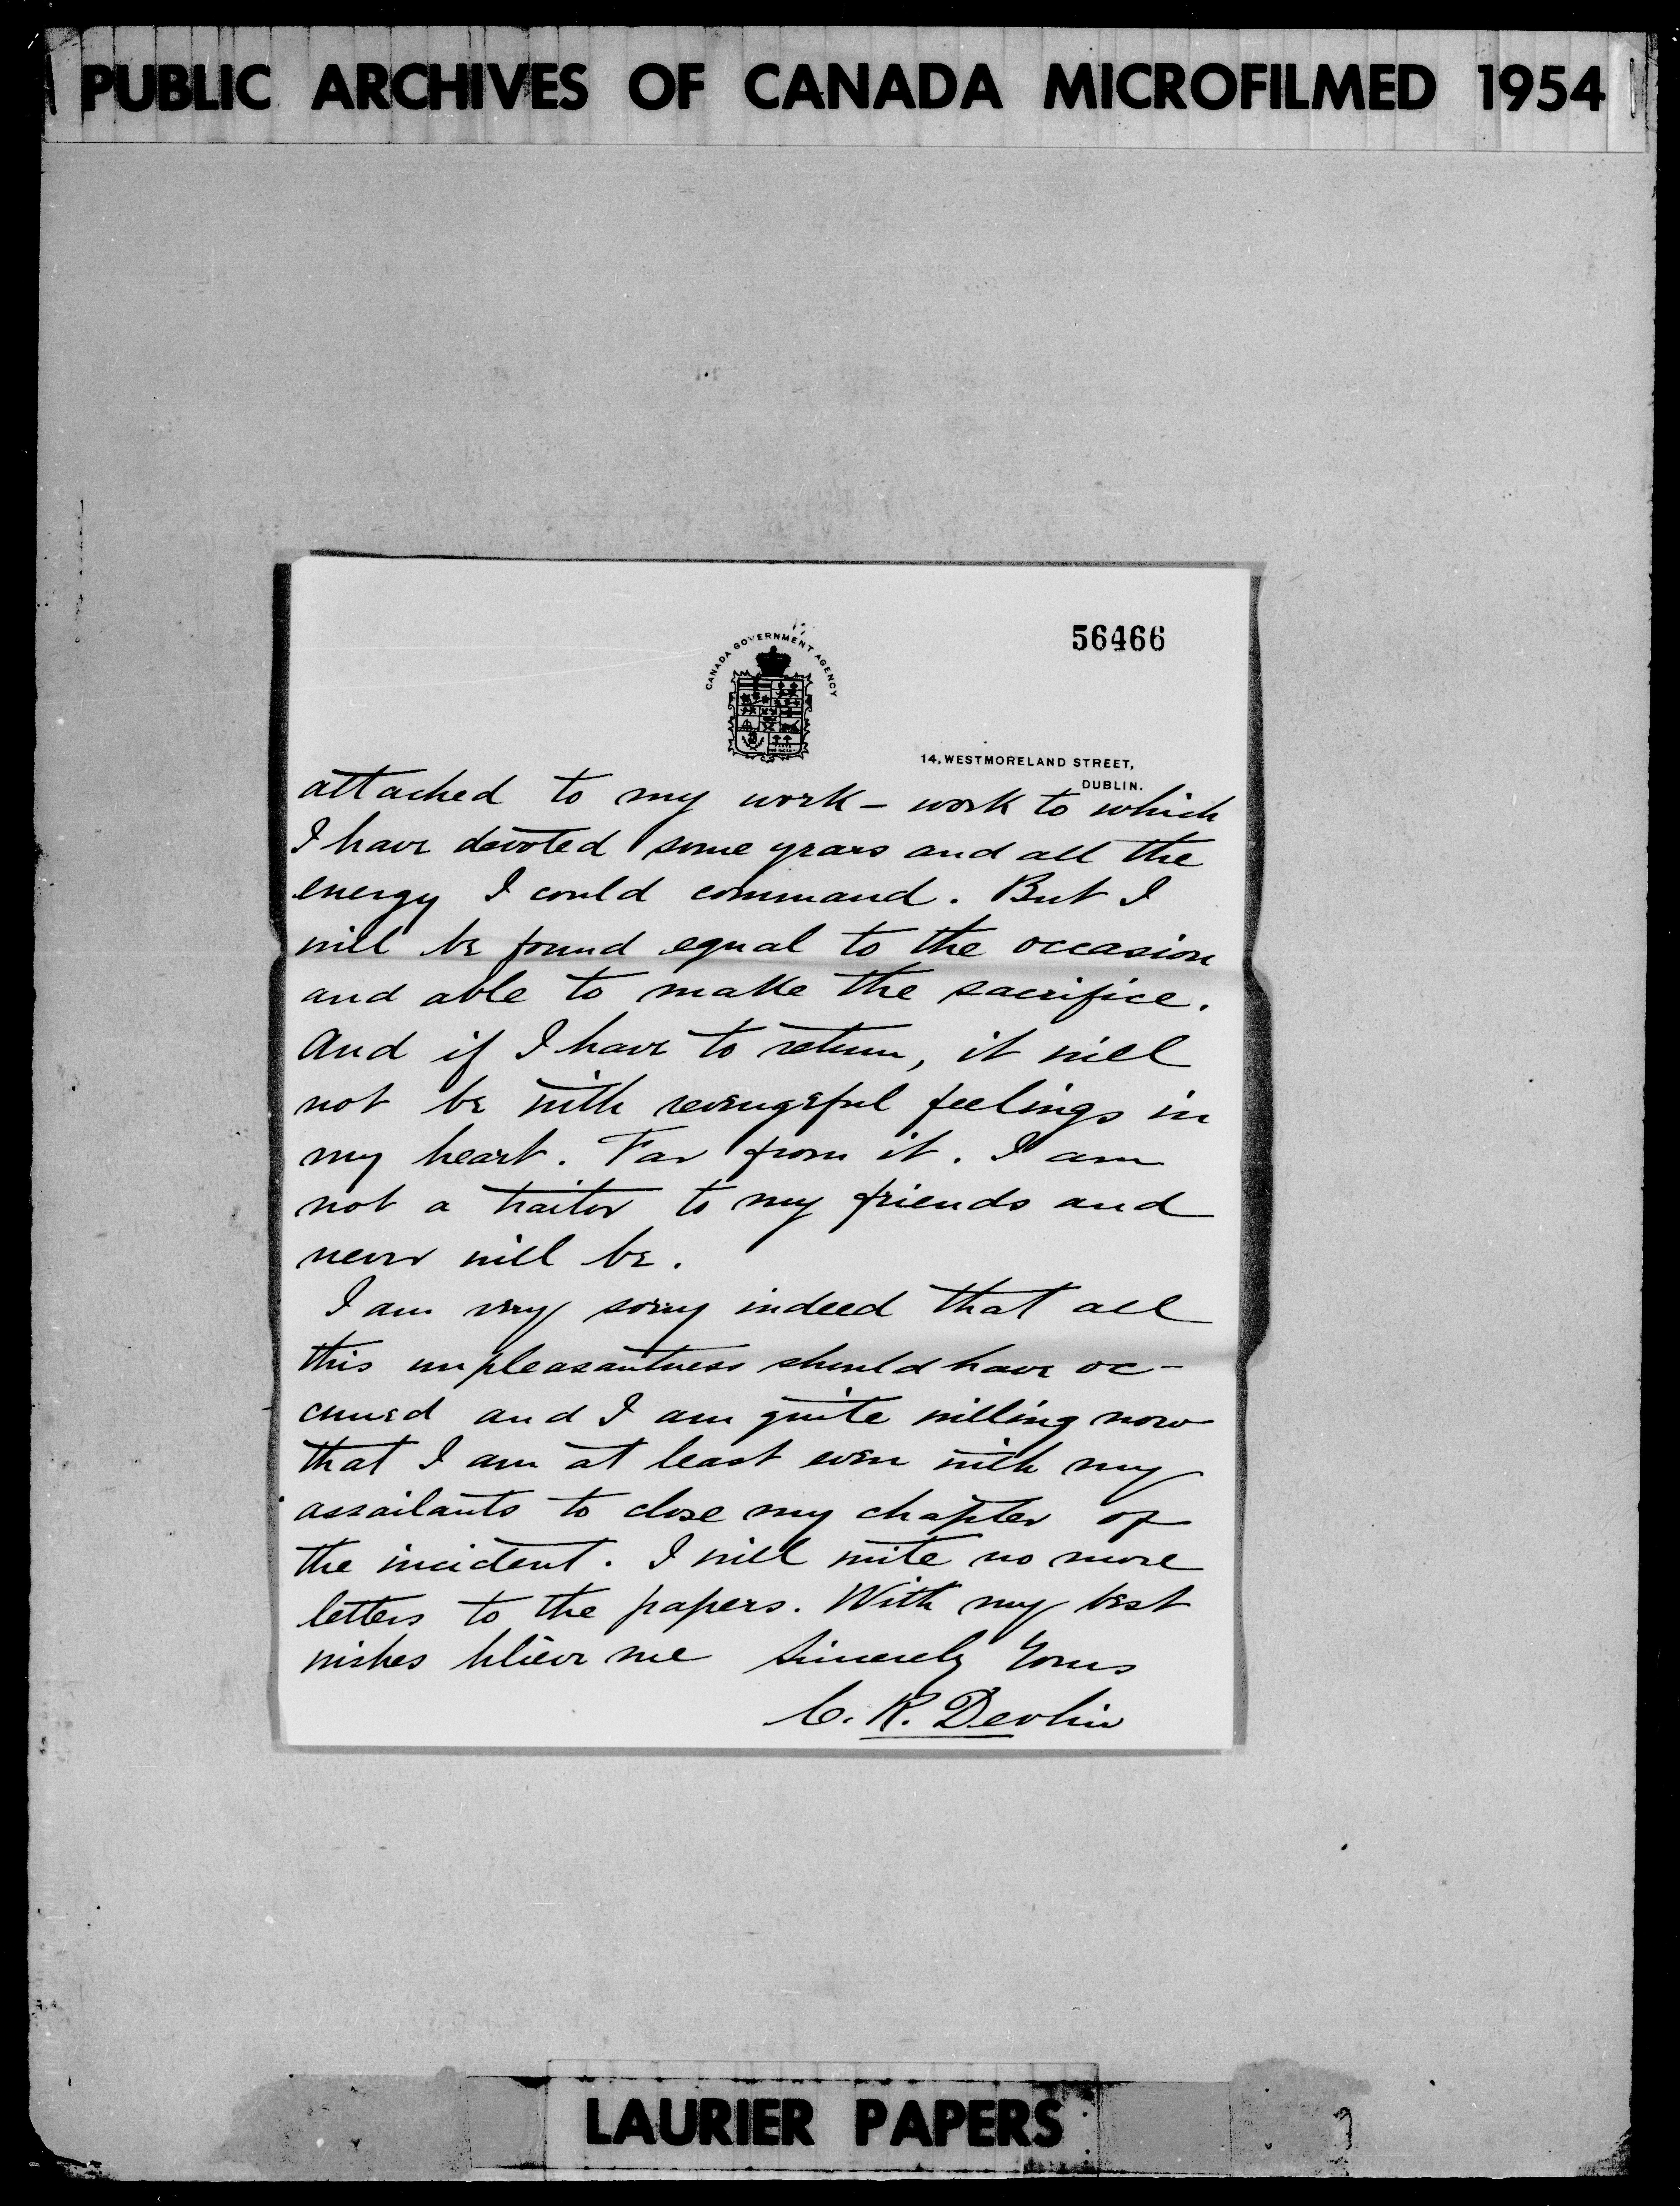 PUBLIC ARCHIVES OF CANADA MICROFILMED 1954
56466
CANADA GOVERNMENT AGENCY
14, WESTMORELAND STREET,
DUBLIN.
attached to my work – work to which
I have devoted some years and all the
energy I could command. But I
will be found equal to the occasion
and able to make the sacrifice.
And if I have to return, it will
not be with revengeful feelings in
my heart. Far from it. I am
not a traitor to my friends and
never will be.
I am very sorry indeed that all
this unpleasantness should have oc-
curred and I am quite willing now
that I am at least even with my
assailants to close my chapter of
the incident. I will write no more
letters to the papers. With my best
wishes believe me Sincerely Yours
C. R. Devlin
LAURIER PAPERS